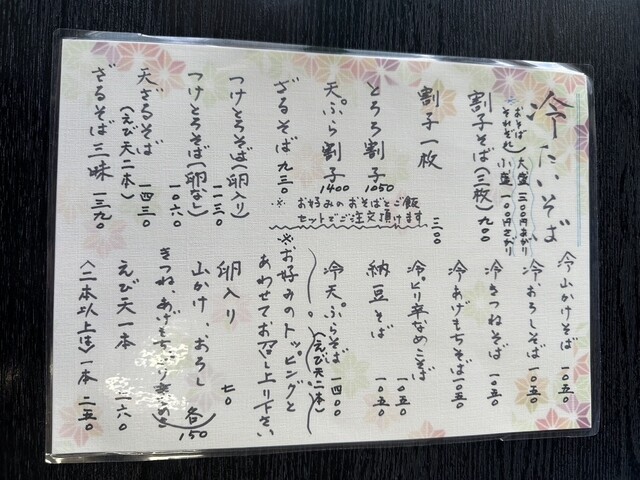 冷たいそば
おそば それぞれ
大盛二〇〇円あがり
小盛一〇〇円さがり
割子そば(三枚)九〇〇
割子一枚 三〇〇
とろろ割子 1050
天ぷら割子 1400
※お好みのおそばとご飯
セットでご注文頂けます
ざるそば 九三〇
つけとろそば(卵入り) 一一三〇
つけとろそば(卵なし) 一〇六〇
天ざるそば 一四三〇
(えび天二本)
ざるそば三昧 一三九〇
冷山かけそば 一〇五〇
冷おろしそば 一〇五〇
冷きつねそば 一〇五〇
冷あげもちそば 一〇五〇
冷ピリ辛なめこそば 一〇五〇
納豆そば 一〇五〇
冷天ぷらそば 一四〇〇
(えび天二本)
※お好みのトッピングと
あわせてお召し上り下さい
卵入り 七〇
山かけ、おろし
きつね、あげもち、ピリ辛なめこ
各150
えび天一本 二六〇
〈二本以上は〉一本 二五〇